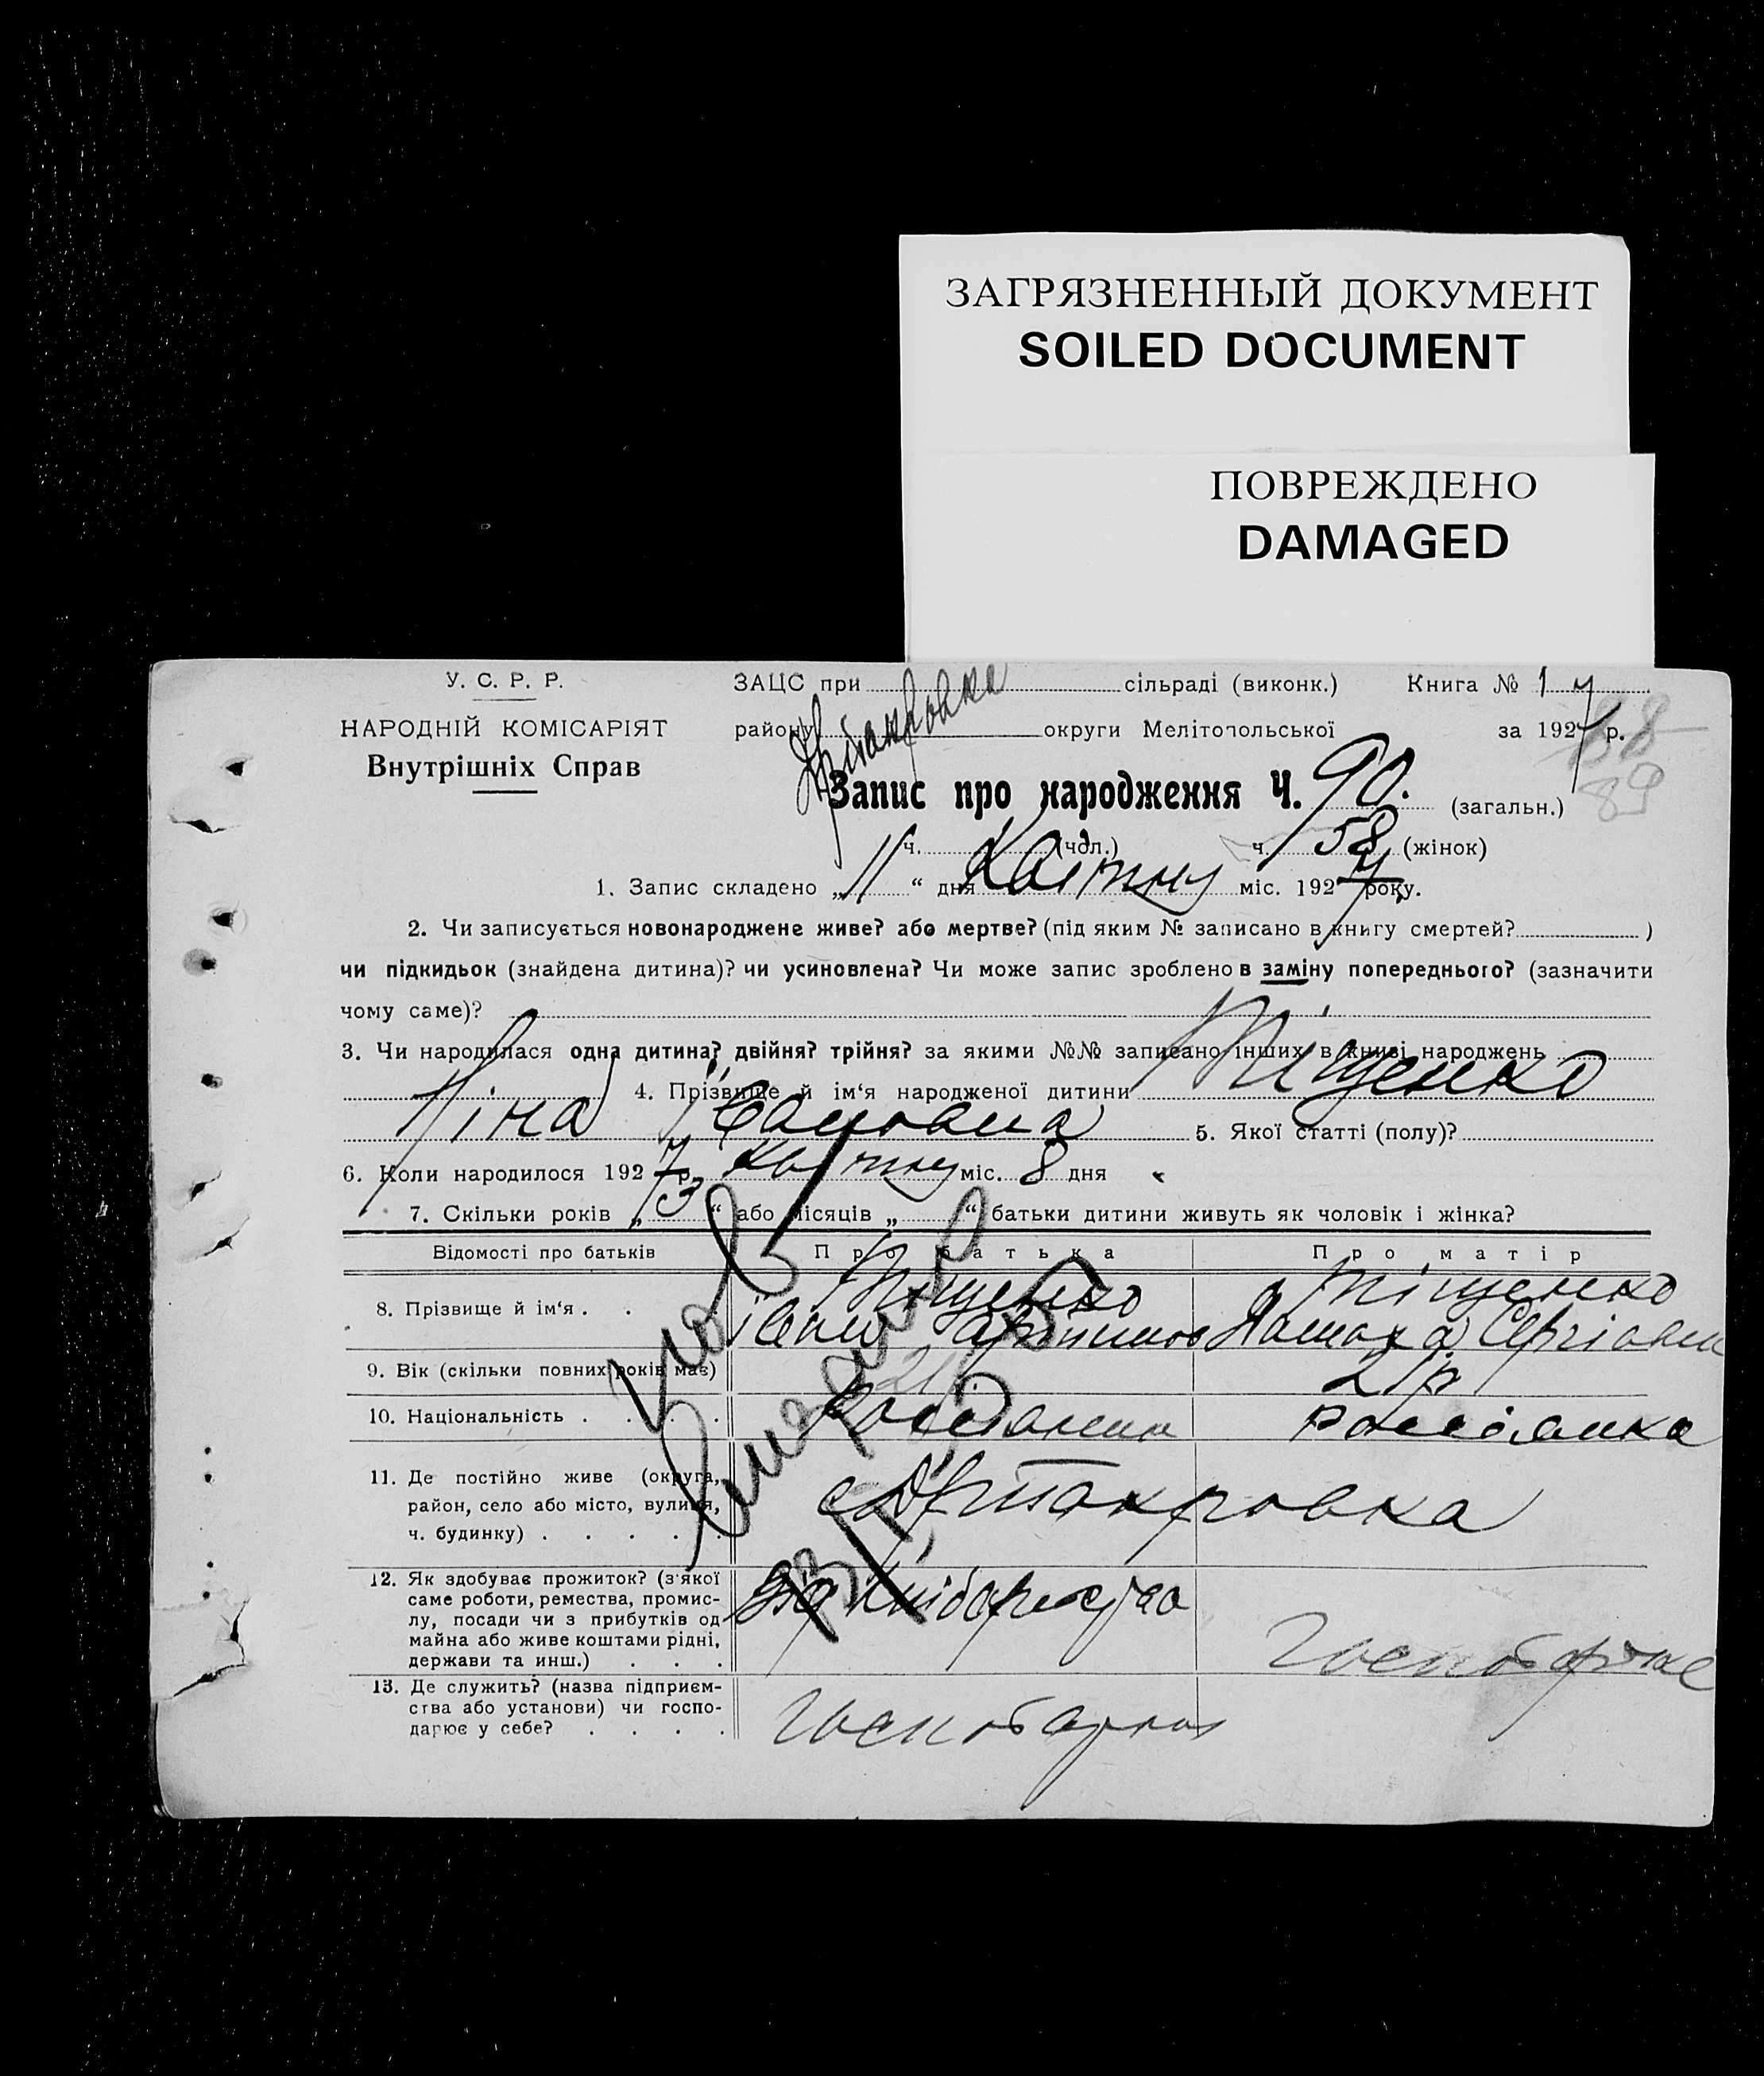 ЗАГРЯЗНЕННЫЙ ДОКУМЕНТ
SOILED DOCUMENT
ПОВРЕЖДЕНО
DAMAGED
У. С. Р. Р.
НАРОДНІЙ КОМІСАРІЯТ
Внутрішніх Справ
ЗАЦС при сільраді (виконк.) Книга № 1
району округи Мелітопольської за 1927 р.
88
89
Запис про народження Ч. 90. (загальн.)
ч. (чол.) ч. 58 (жінок)
1. Запис складено „11“ дня Квітну міс. 1927 року.
2. Чи записується новонароджене живе? або мертве? (під яким № записано в книгу смертей? )
чи підкидьок (знайдена дитина)? чи усиновлена? Чи може запис зроблено в заміну попереднього? (зазначити
чому саме)?
3. Чи народилася одна дитина? двійня? трійня? за якими №№ записано інших в книзі народжень
4. Прізвище й ім‘я народженої дитини Тіщенко
Ніна Івановна 5. Якої статті (полу)?
6. Коли народилося 1927 р. Квітну міс. 8 дня
7. Скільки років „3“ або місяців „ “ батьки дитини живуть як чоловік і жінка?
Відомості про батьків Про батька Про матір
8. Прізвище й ім‘я . Тіщенко Тіщенко
Іван Сергіовн
9. Вік (скільки повних років має) 21 21 р.
10. Національність . Россіянин Россіянка
11. Де постійно живе (округа,
район, село або місто, вулиця,
ч. будинку) .
12. Як здобуває прожиток? (з‘якої
саме роботи, ремества, промис-
лу, посади чи з прибутків од
майна або живе коштами рідні,
держави та инш.) .
13. Де служить? (назва підприєм-
ства або установи) чи госпо-
дарює у себе? .